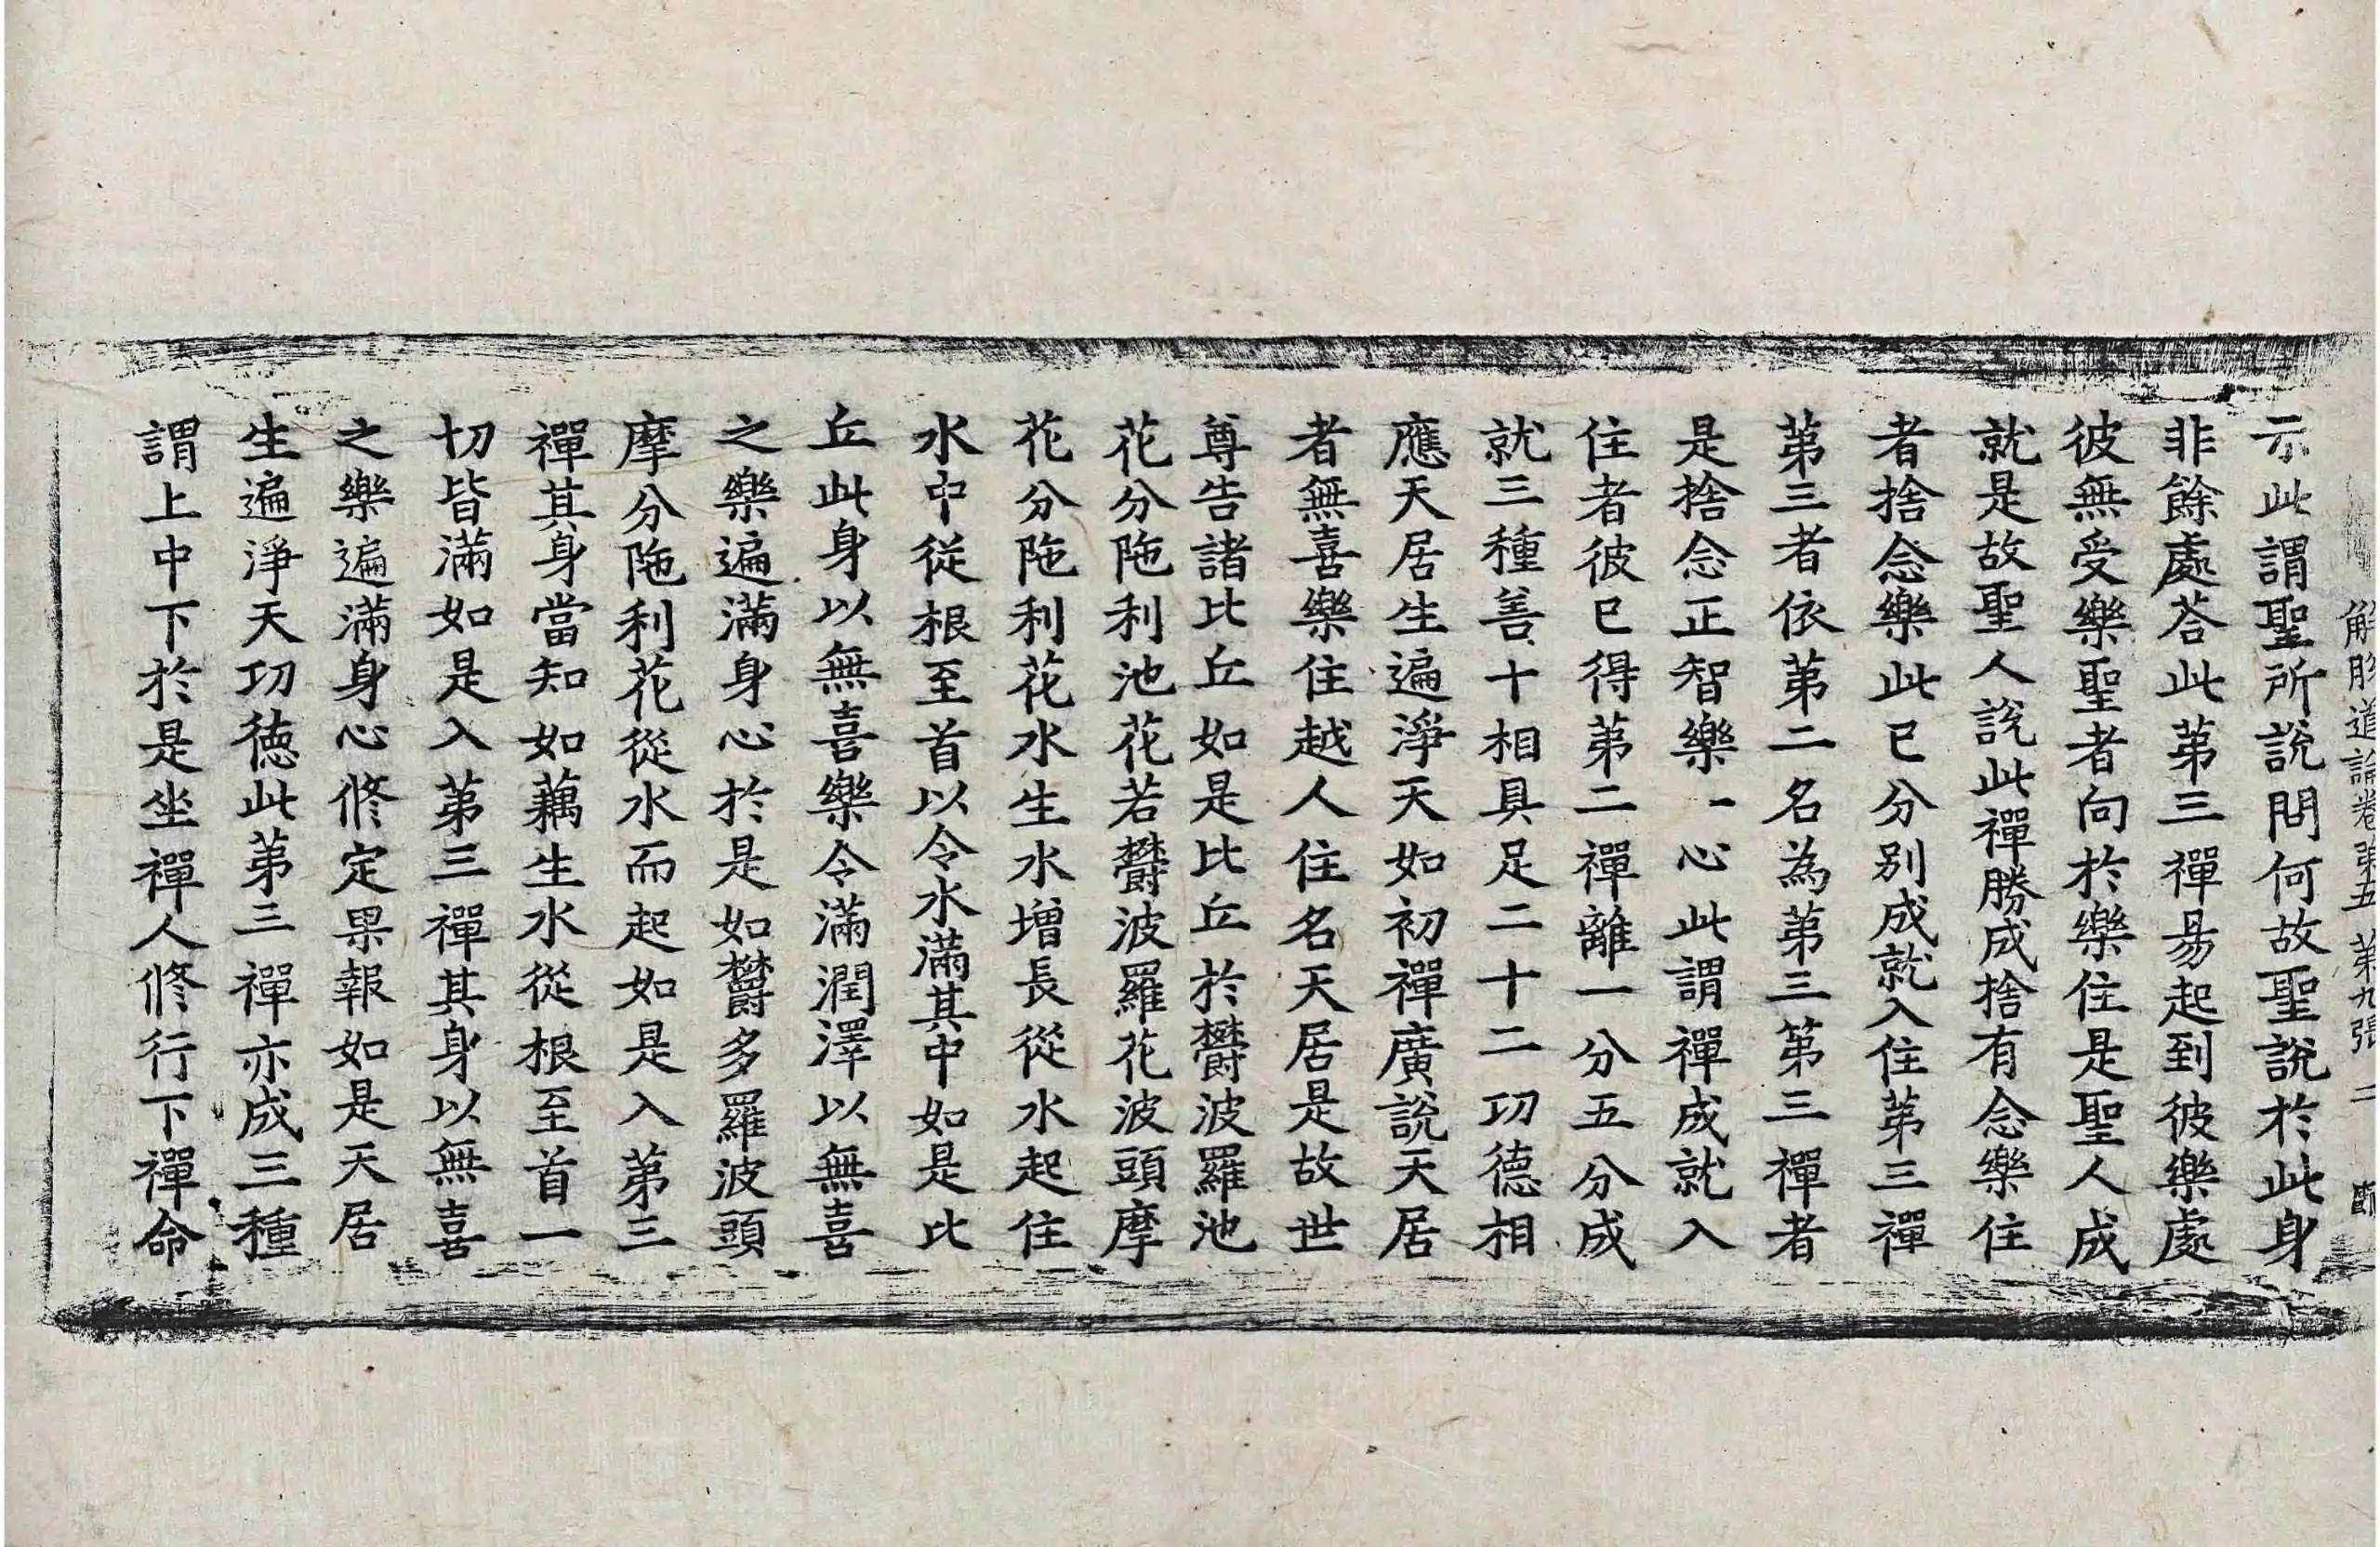 解脫道論卷第五　第九張　二
示此謂聖所說問何故聖說於此身
非餘處荅此第三禪易起到彼樂處
彼無受樂聖者向於樂住是聖人成
就是故聖人說此禪勝成捨有念樂住
者捨念樂此已分別成就入住第三禪
第三者依第二名為第三第三禪者
是捨念正智樂一心此謂禪成就入
住者彼已得第二禪離一分五分成
就三種善十相具足二十二功德相
應天居生遍淨天如初禪廣說天居
者無喜樂住越人住名天居是故世
尊告諸比丘如是比丘於欝波羅池
花分陁利池花若欝波羅花波頭摩
花分陁利花水生水增長從水起住
水中從根至首以令水滿其中如是比
丘此身以無喜樂令滿潤澤以無喜
之樂遍滿身心於是如欝多羅波頭
摩分陁利花從水而起如是入第三
禪其身當知如藕生水從根至首一
切皆滿如是入第三禪其身以無喜
之樂遍滿身心修定果報如是天居
生遍淨天功德此第三禪亦成三種
謂上中下於是坐禪人修行下禪命